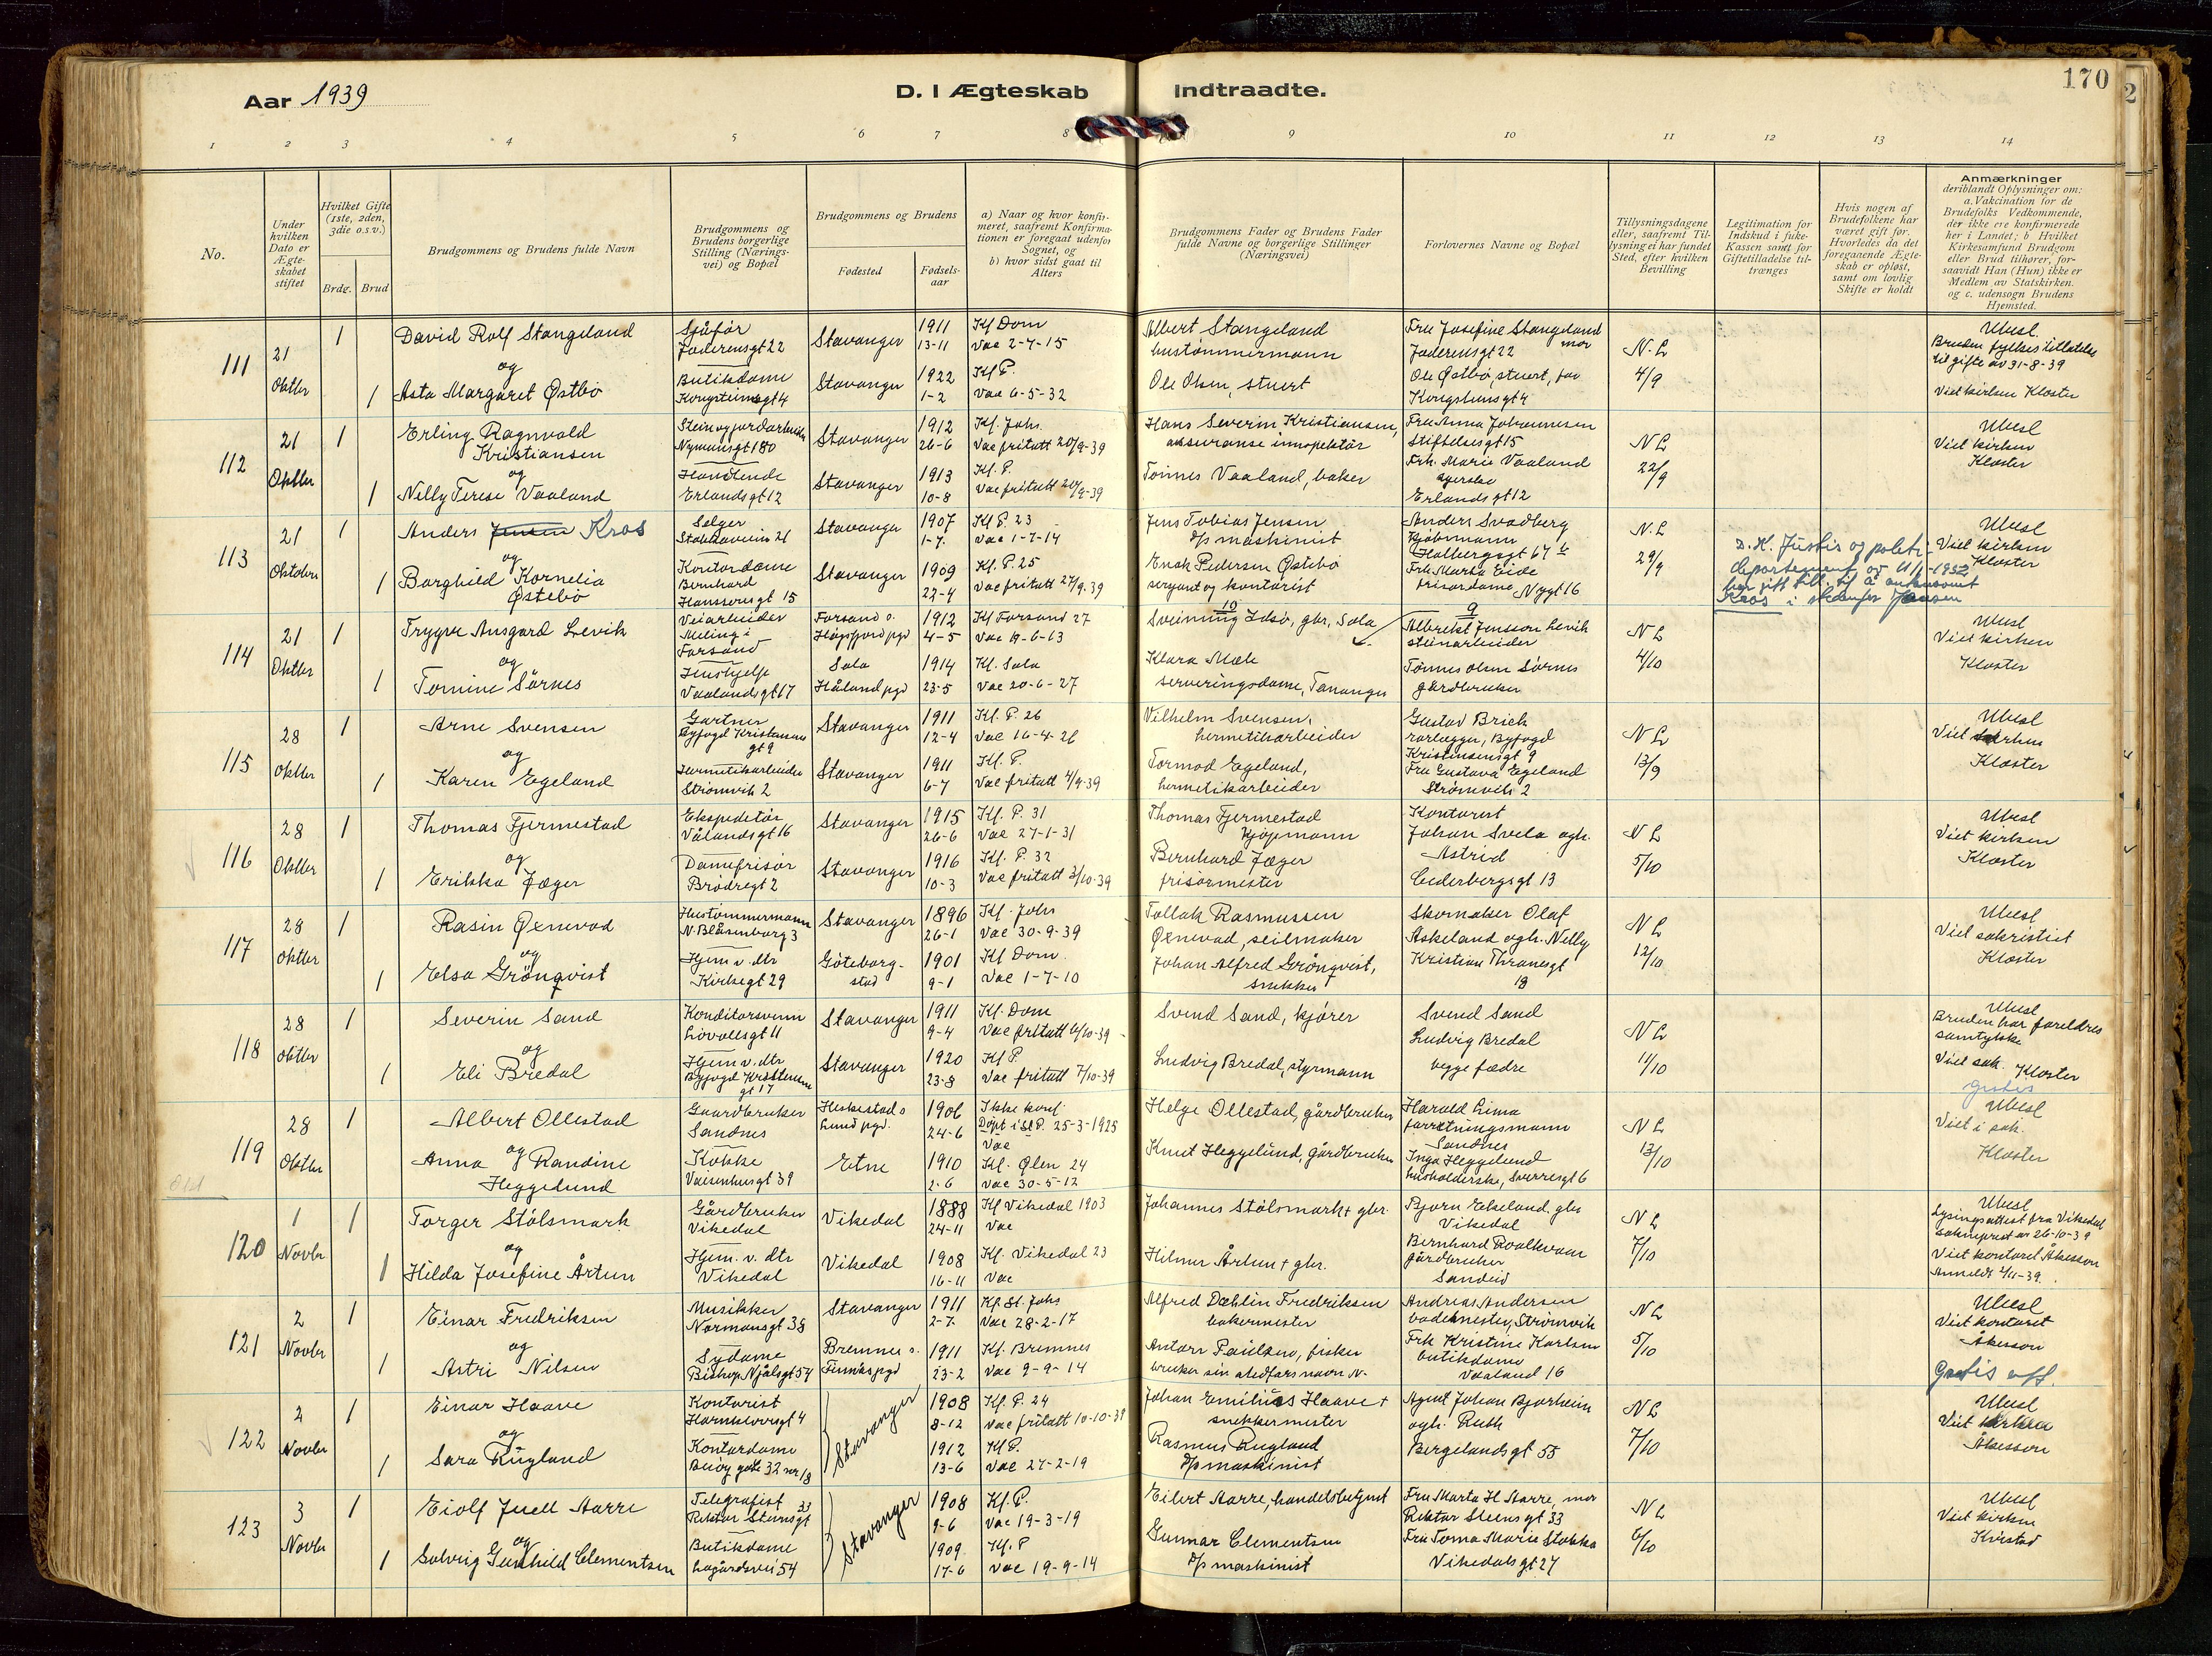 Aar 1939
D. I Ægteskab
Indtraadte.
170
2
1 2 3 4 5 6 7 8 9 10 11 12 13 14
No.
Under hvilken Dato er Ægteskabet stiftet
Hvilket Gifte (1ste, 2den, 3die o.s.v.)
Brdg. Brud
Brudgommens og Brudens fulde Navn
Brudgommens og Brudens borgerlige Stilling (Næringsvei) og Bopæl
Brudgommens og Brudens
Fødested
Fødselsaar
a) Naar og hvor konfirmeret, saafremt Konfirmationen er foregaat udenfor Sognet, og
b) hvor sidst gaat til Alters
Brudgommens Fader og Brudens Fader fulde Navne og borgerlige Stillinger (Næringsvei)
Forlovernes Navne og Bopæl
Tillysningsdagene eller, saafremt Tillysning ei har fundet Sted, efter hvilken Bevilling
Legitimation for Indskud i Enkekassen samt for Giftetilladelse tiltrænges
Hvis nogen af Brudefolkene har været gift før. Hvorledes da det foregaaende Ægteskab er opløst, samt om lovlig Skifte er holdt
Anmærkninger
deriblandt Oplysninger om: a. Vakcination for de Brudefolks Vedkommende, der ikke ere konfirmerede her i Landet; b Hvilket Kirkesamfund Brudgom eller Brud tilhører, forsaavidt Han (Hun) ikke er Medlem av Statskirken. og c. udensogn Brudens Hjemsted.
111
21 Oktbr
1
David Rolf Stangeland
og
1
Asta Margaret Østbö
Sjåfør
Jæderensgt 22
Butikdame
Kongsteinsgt 4
Stavanger
Stavanger
1911
13-11
1922
1-2
Kf Dom
Vac 2-7-15
Kf P.
Vac 6-5-32
Albert Stangeland
hustømmermann
Ole Olsen, stuert
Fru Josefine Stangeland mor
Jæderensgt 22
Ole Østbö, stuert, far
Kongsteinsgt 4
N.L
4/9
Ubesl.
Bruden fylkes tillatelse til gifte av 31-8-39
Viet kirken Kloster
112
21 Oktbr
1
Erling Ragnvald Kristiansen
og
1
Nelly Terese Vaaland
Stein og jordarbeider
Nymansgt 180
Handlende
Erlandsgt 12
Stavanger
Stavanger
1912
26-6
1913
10-8
Kf. Johs.
Vac fritatt 20/9-39
Kf. P.
Vac fritatt 20/9-39
Hans Severin Kristiansen,
assuranse inspektör
Tönnes Vaaland, baker
Fru Anna Johannesen
Stiftelsesgt 15
Frk. Marie Vaaland
Erlandsgt 12
N L
22/9
Ubesl
Viet kirken
Kloster
113
21 Oktober
1
Anders Jensen Kros
og
1
Borghild Kornelia Østebö
Selger
Stokkaveien 21
Kontordame
Bernhard
Hanssensgt 15
Stavanger
Stavanger
1907
1-7
1909
22-4
Kf P. 23
Vac 1-7-14
Kf. P. 25
Vac fritatt 27/9-39
Jens Tobias Jensen
d/s maskinist
Enok Pedersen Østebö
sersjant og kontorist
Anders Svadberg
kjøbmann
Holbergsgt 67 b
Frk. Marta Eide
frisørdame Nygt 16
N.L
29/9
D. K. Justis og politidepartement av 11/1-1952
har gitt till. til å antaknavnet
Kros i stedenfor Jensen
Ubesl
Viet kirken
Kloster
114
21 Oktbr
1
Trygve Ansgard Levik
og
1
Tomine Sörnes
Veiarbeider
Meling i
Forsand
Hushjelp
Vaalandsgt 17
Forsand s.
Høgsfjord pgd
Sola
Håland pgd
1912
4-5
1914
23-5
Kf Forsand 27
Vac 19-6-13
Kf. Sola
Vac 20-6-27
10
Sveinung Idsø, gbr, Sola
Klara Mæle
serveringsdame, Tananger
9
Albrekt Jensson Levik
steinarbeider
Tönnes Olsen Sörnes
gårdbruker
N L
4/10
Ubesl
Viet kirken
Kloster
115
28 Oktbr
1
Arne Svensen
og
1
Karen Egeland
Gartner
Byfogd Kristensens gt 9
Hermetikarbeider
Strømvik 2
Stavanger
Stavanger
1911
12-4
1911
6-7
Kf. P. 26
Vac 16-4-26
Kf. P.
Vac fritatt 4/9-39
Vilhelm Svensen,
hermetikarbeider
Tormod Egeland,
hermetikarbeider
Gustav Brick
rørlegger, Byfogd
Kristensensgt 9
Fru Gustava Egeland
Strømvik 2
N L
13/9
Ubesl
Viet kirken
Kloster
116
28 Oktbr
1
Thomas Fjermestad
og
1
Erikka Jæger
Ekspeditör
Vålandsgt 16
Damefrisör
Brödregt 2
Stavanger
Stavanger
1915
26-6
1916
10-3
Kf. P. 31
Vac 27-1-31
Kf. P. 32
Vac fritatt 3/10-39
Thomas Fjermestad
kjøpmann
Bernhard Jæger
frisörmester
Kontorist
Johan Svela ogh.
Astrid
Cederbergsgt 13
N L
5/10
Ubesl
Viet kirken
Kloster
117
28 Oktbr
1
Rasin Øxnevad
og
1
Elsa Grönqvist
Hustømmermann
N. Blåsenborg 3
Hjem v. dtr
Kirkegt 29
Stavanger
Göteborg-
stad
1896
26-1
1901
9-1
Kf. Johs
Vac 30-9-39
Kf Dom.
Vac 1-7-10
Tollak Rasmussen
Øxnevad, seilmaker
Johan Alfred Grönqvist,
snekker
Skomaker Olaf
Askeland ogh. Nelly
Kristian Thranesgt
19
N L
12/10
Ubesl
Viet sakristiet
Kloster
118
28 Oktbr
1
Severin Sand
og
1
Eli Bredal
Konditorsvenn
Lövollsgt 11
Hjem v. dtr
Byfogd Kristensens gt 17
Stavanger
Stavanger
1911
9-4
1920
23-8
Kf. Dom
Vac fritatt 6/10-39
Kf P.
Vac fritatt 7/10-39
Svend Sand, kjører
Ludvig Bredal, styrmann
Svend Sand
Ludvig Bredal
begge fædre
N L
11/10
Ubesl
Bruden har foreldres samtykke
Viet sak. Kloster
gratis
119
28 Oktbr
1
Albert Ollestad
og
Anna Randine Heggelund
Gaardbruker
Sandnes
Kokke
Vaisenhusgt 39
Heskestad s
Lund pgd.
Etne
1906
24-6
1910
2-6
Ikke konf.
Döpt i St P. 25-3-1925
Vac
Kf. Ølen 24
Vac 30-5-12
Helge Ollestad, gårdbruker
Knut Heggelund, gårdbruker
Harald Lima
forretningsmann
Sandnes
Inga Heggelund
husholderske, Sverresgt 6
N L
13/10
Ubesl
Viet i sak.
Kloster
120
1 Novbr
1
Torger Stölsmark
og
1
Hilda Josefine Årtun
Gårdbruker
Vikedal
Hjem. v. dtr
Vikedal
Vikedal
Vikedal
1888
24-11
1908
16-11
Kf Vikedal 1903
Vac
Kf. Vikedal 23
Vac
Johannes Stölsmark + gbr.
Hilmer Årtun + gbr.
Bjørn Ekeland gbr
Vikedal
Bernhard Roalkvam
gårdbruker
Sandeid
N L
7/10
Ubesl
Lysingsattest fra Vikedal
sokneprest av 26-10-39
Viet kontoret Åkesson
121
2 Novbr
1
Einar Fredriksen
og
1
Astri Nilsen
Musikker
Normannsgt 38
Sydame
Biskop Njålsgt 54
Stavanger
Bremnes s.
Finnås pgd
1911
2-7
1911
23-2
Kf. St. Johs
Vac 28-2-17
Kf. Bremnes
Vac 9-9-14
Alfred Dæhlin Fredriksen
bakermester
bruker sin stedfars navn N.
Andreas Andersen
bademester, Strömvik
Frk Kristine Karlsen
butikdame
Vaaland 16
N L
5/10
Ubesl
Viet kontoret
Åkesson
Gratis att.
122
2 Novbr
1
Einar Haave
og
1
Sara Rugland
Kontorist
Kontordame
Stavanger
1908
8-12
1912
13-6
Kf. P. 24
Vac fritatt 10-10-39
Kf P.
Vac 27-2-19
Johan Emilius Haave +
snekkermester
Rasmus Rugland
d/s maskinist
Agent Johan Bjorheim
ogh. Ruth
Bergelandsgt 55
N L
7/10
Ubesl
Viet kirken
Åkesson
123
3 Novbr
1
Eiolf Juell Aarre
og
1
Solveig Gunhild Clementsen
Telegrafist
Rektor Steensgt 33
Butikdame
Lagårdsvei 54
Stavanger
1908
9-6
1909
17-6
Kf. P.
Vac 19-3-19
Kf. P
Vac 19-9-14
Eilert Aarre, handelsbetjent
Gunnar Clementsen
d/s maskinist
Fru Marta H Aarre, mor
Rektor Steensgt 33
Fru Toma Marie Stokka
Vikedalsgt 27
N L
6/10
Ubesl
Viet kirken